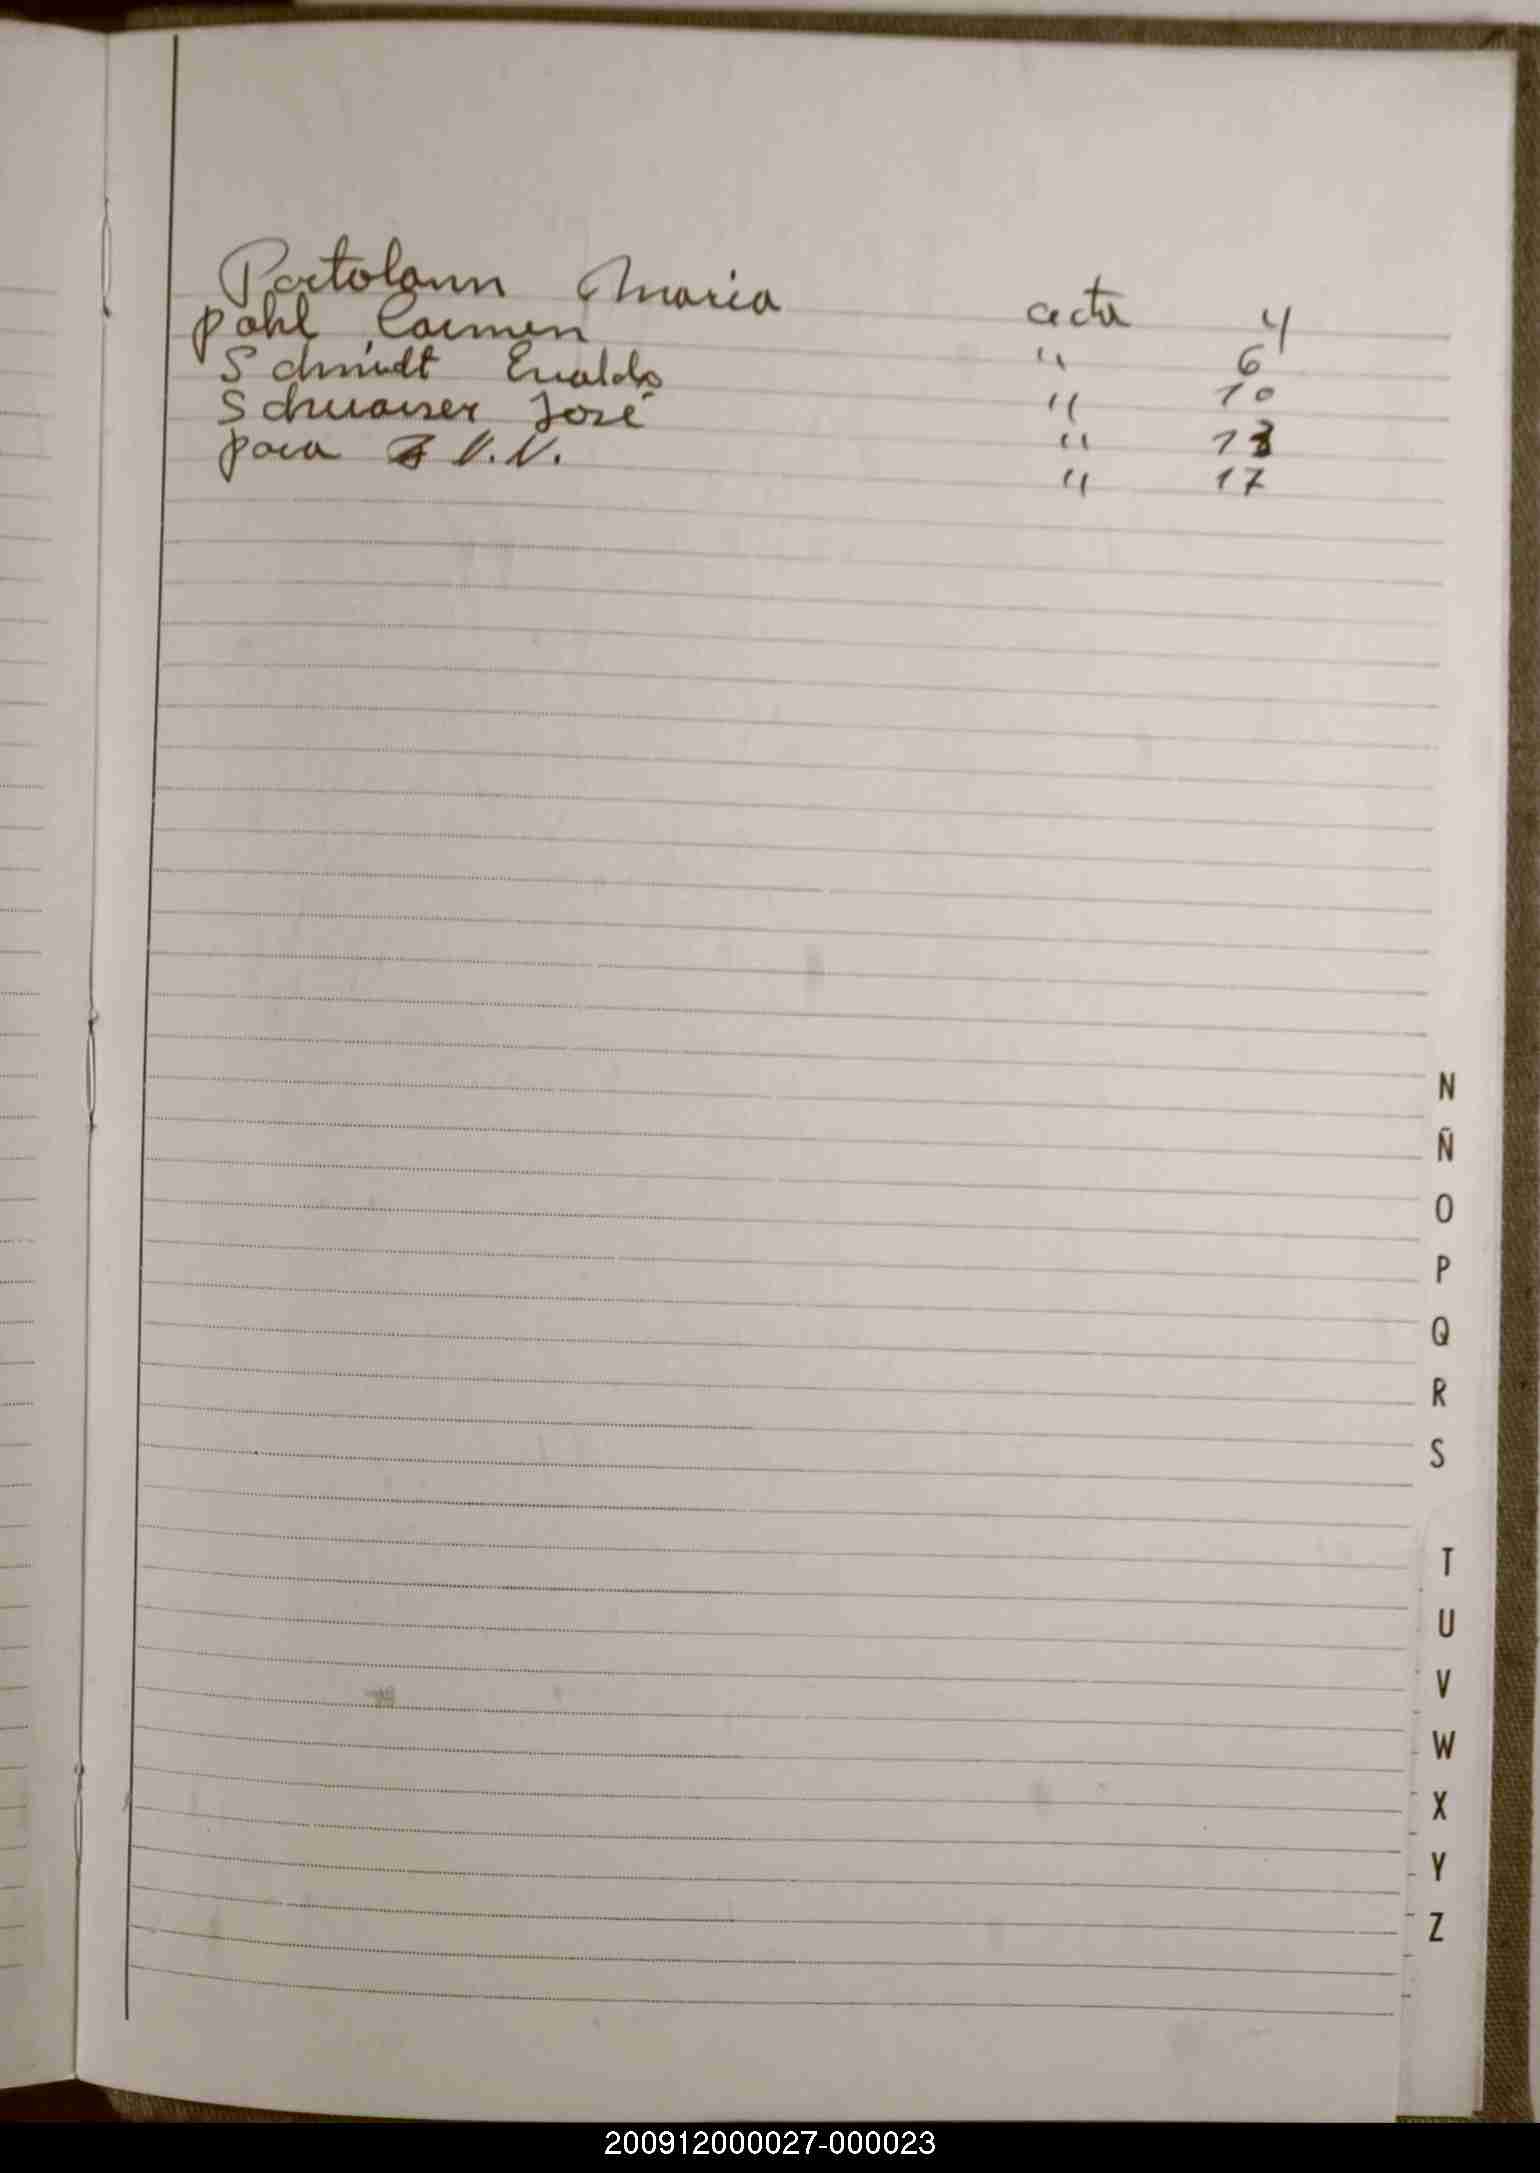 Portolann Maria acta 4
pohl Carmen " 6
Schmidt Evaldo " 10
Schwaiser José " 13
para N.N. " 17
N
Ñ
O
P
Q
R
S
T
U
V
W
X
Y
Z
200912000027-000023